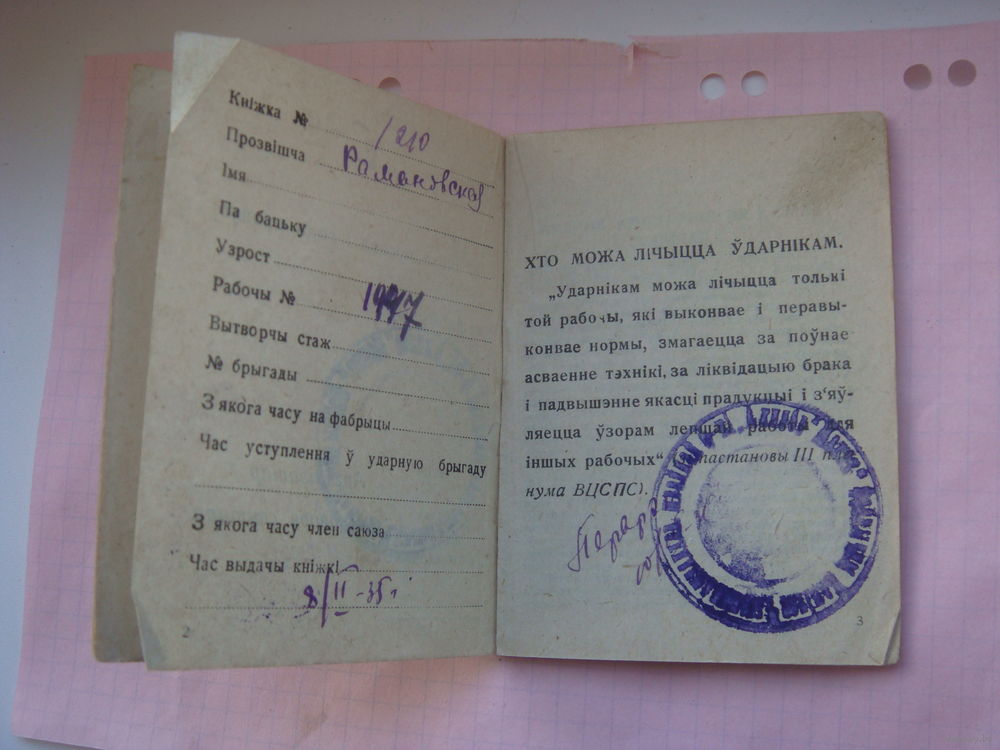 Кніжка № 1210
Прозвішча Рамановская
Імя
Па бацьку
Узрост
Рабочы № 1947
Вытворчы стаж
№ брыгады
З якога часу на фабрыцы
Час уступлення ў ударную брыгаду
З якога часу член саюза
Час выдачы кніжкі
8/II-35 г.
2
ХТО МОЖА ЛІЧЫЦЦА ЎДАРНІКАМ.
„Ударнікам можа лічыцца толькі
той рабочы, які выконвае і перавы-
конвае нормы, змагаецца за поўнае
асваенне тэхнікі, за ліквідацыю брака
і падвышэнне якасці прадукцыі і з‘яў-
ляецца ўзорам лепшай работы для
іншых рабочых“ пастановы III пле
нума ВЦСПС).
3